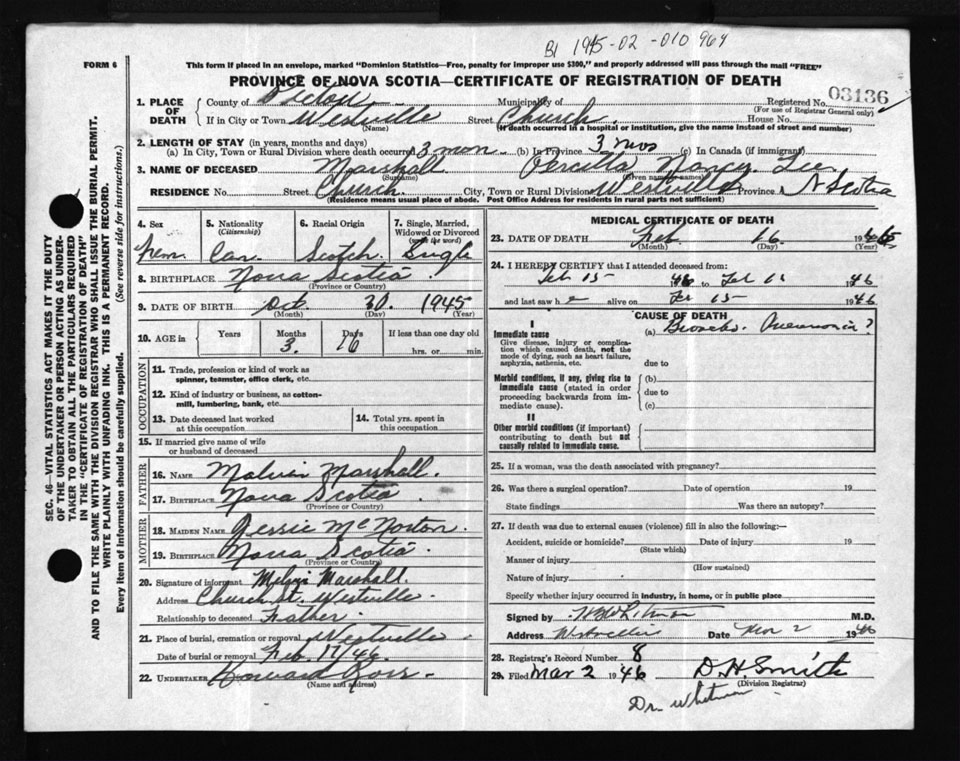 B1 1945-02-010969
FORM 6
This form if placed in an envelope, marked "Dominion Statistics—Free, penalty for improper use $300," and properly addressed will pass through the mail "FREE"
PROVINCE OF NOVA SCOTIA—CERTIFICATE OF REGISTRATION OF DEATH
03136
SEC. 46—VITAL STATISTICS ACT MAKES IT THE DUTY
OF THE UNDERTAKER OR PERSON ACTING AS UNDER-
TAKER TO OBTAIN ALL THE PARTICULARS REQUIRED
IN THE "CERTIFICATE OF REGISTRATION OF DEATH"
AND TO FILE THE SAME WITH THE DIVISION REGISTRAR WHO SHALL ISSUE THE BURIAL PERMIT.
WRITE PLAINLY WITH UNFADING INK. THIS IS A PERMANENT RECORD.
Every item of information should be carefully supplied. (See reverse side for instructions.)
1. PLACE OF DEATH County of Pictou Municipality of Registered No.
(For use of Registrar General only)
If in City or Town Westville Street Church House No.
(Name) (If death occurred in a hospital or institution, give the name instead of street and number)
2. LENGTH OF STAY (in years, months and days)
(a) In City, Town or Rural Division where death occurred 3 mon. (b) In Province 3 mos (c) In Canada (if immigrant)
3. NAME OF DECEASED Marshall Nancy
(Surname) (Given names)
RESIDENCE No. Street Church City, Town or Rural Division Westville Province N Scotia
(Residence means usual place of abode. Post Office Address for residents in rural parts not sufficient)
4. Sex Fem.
5. Nationality (Citizenship) Can.
6. Racial Origin Scotch.
7. Single, Married, Widowed or Divorced (write the word) Single
8. BIRTHPLACE Nova Scotia
(Province or Country)
9. DATE OF BIRTH Oct. 30. 1945
(Month) (Day) (Year)
10. AGE in Years Months 3. Days 16 If less than one day old hrs. or min.
OCCUPATION
11. Trade, profession or kind of work as spinner, teamster, office clerk, etc.
12. Kind of industry or business, as cotton-mill, lumbering, bank, etc.
13. Date deceased last worked at this occupation
14. Total yrs. spent in this occupation
15. If married give name of wife or husband of deceased
FATHER
16. NAME Malvin Marshall.
17. BIRTHPLACE Nova Scotia
(Province or Country)
MOTHER
18. MAIDEN NAME Jessie McNorton.
19. BIRTHPLACE Nova Scotia.
(Province or Country)
20. Signature of informant Melvin Marshall.
Address Church St. Westville.
Relationship to deceased Father
21. Place of burial, cremation or removal Westville
Date of burial or removal Feb. 17/46.
22. UNDERTAKER Howard
(Name and address)
MEDICAL CERTIFICATE OF DEATH
23. DATE OF DEATH Feb 16 19
(Month) (Day) (Year)
24. I HEREBY CERTIFY that I attended deceased from:
Feb 15 1946 to Feb 1946
and last saw h e alive on Feb 15 1946
CAUSE OF DEATH
I
Immediate cause
Give disease, injury or complication which caused death, not the mode of dying, such as heart failure, asphyxia, asthenia, etc.
(a) Broncho. Pneumonia ?
due to
Morbid conditions, if any, giving rise to immediate cause (stated in order proceeding backwards from immediate cause).
(b)
due to
(c)
II
Other morbid conditions (if important) contributing to death but not causally related to immediate cause.
25. If a woman, was the death associated with pregnancy?
26. Was there a surgical operation? Date of operation 19
State findings Was there an autopsy?
27. If death was due to external causes (violence) fill in also the following:—
Accident, suicide or homicide? Date of injury 19
(State which)
Manner of injury
(How sustained)
Nature of injury
Specify whether injury occurred in industry, in home, or in public place
Signed by M.D.
Address Westville Date 2 1946
28. Registrar's Record Number 8
29. Filed Mar 2 1946 D. H. Smith
(Division Registrar)
Dr. Whitman